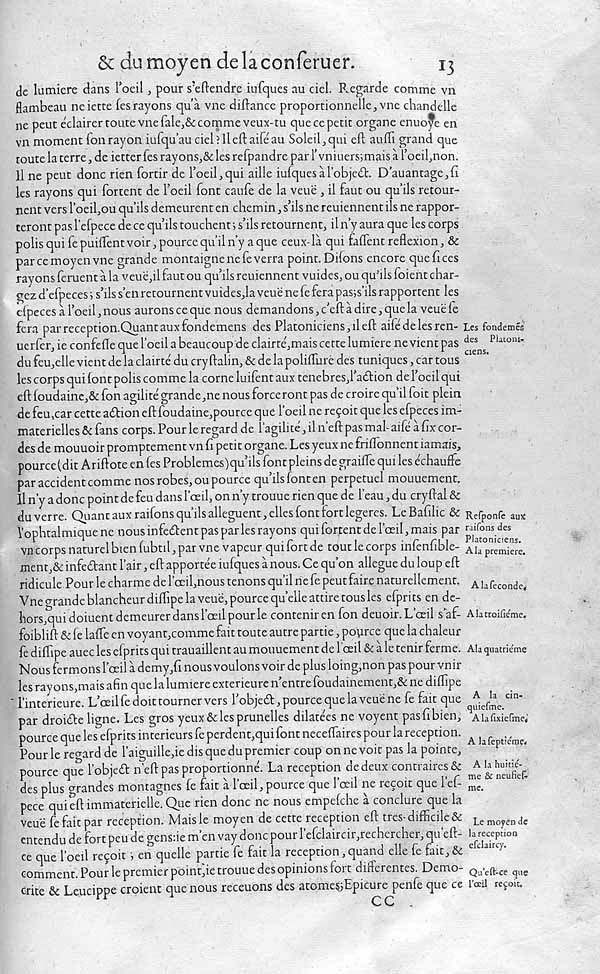 & du moyen de la conſeruer. 13
de lumiere dans l'oeil, pour s'eſtendre iuſques au ciel. Regarde comme vn
flambeau ne iette ſes rayons qu'à vne diſtance proportionnelle, vne chandelle
ne peut éclairer toute vne ſale, & comme veux-tu que ce petit organe enuoye en
vn moment ſon rayon iuſqu'au ciel? Il eſt aiſé au Soleil, qui eſt auſſi grand que
toute la terre, de ietter ſes rayons, & les reſpandre par l'vniuers; mais à l'oeil, non.
Il ne peut donc rien ſortir de l'oeil, qui aille iuſques à l'objećt. D'auantage, ſi
les rayons qui ſortent de l'oeil ſont cauſe de la veuë, il faut ou qu'ils retour-
nent vers l'oeil, ou qu'ils demeurent en chemin, s'ils ne reuiennent ils ne rappor-
teront pas l'eſpece de ce qu'ils touchent; s'ils retournent, il n'y aura que les corps
polis qui ſe puiſſent voir, pource qu'il n'y a que ceux-là qui faſſent reflexion, &
par ce moyen vne grande montaigne ne ſe verra point. Diſons encore que ſi ces
rayons ſeruent à la veuë, il faut ou qu'ils reuiennent vuides, ou qu'ils ſoient char-
gez d'eſpeces; s'ils s'en retournent vuides, la veuë ne ſe fera pas; s'ils rapportent les
eſpeces à l'oeil, nous aurons ce que nous demandons, c'eſt à dire, que la veuë ſe
fera par reception. Quant aux fondemens des Platoniciens, il eſt aiſé de les ren-
uerſer, ie confeſſe que l'oeil a beaucoup de clairté, mais cette lumiere ne vient pas
du feu, elle vient de la clairté du cryſtalin, & de la poliſſure des tuniques, car tous
les corps qui ſont polis comme la corne luiſent aux tenebres, l'action de l'oeil qui
eſt ſoudaine, & ſon agilité grande, ne nous forceront pas de croire qu'il ſoit plein
de feu, car cette action eſt ſoudaine, pource que l'oeil ne reçoit que les eſpeces im-
materielles & ſans corps. Pour le regard de l'agilité, il n'eſt pas mal-aiſé à ſix cor-
des de mouuoir promptement vn ſi petit organe. Les yeux ne friſſonnent iamais,
pource (dit Ariſtote en ſes Problemes) qu'ils ſont pleins de graiſſe qui les échauffe
par accident comme nos robes, ou pource qu'ils ſont en perpetuel mouuement.
Il n'y a donc point de feu dans l'œil, on n'y trouue rien que de l'eau, du cryſtal &
du verre. Quant aux raiſons qu'ils alleguent, elles ſont fort legeres. Le Baſilic &
l'ophtalmique ne nous infectent pas par les rayons qui ſortent de l'œil, mais par
vn corps naturel bien ſubtil, par vne vapeur qui ſort de tout le corps inſenſible-
ment, & infectant l'air, eſt apportée iuſques à nous. Ce qu'on allegue du loup eſt
ridicule Pour le charme de l'œil, nous tenons qu'il ne ſe peut faire naturellement.
Vne grande blancheur diſſipe la veuë, pource qu'elle attire tous les eſprits en de-
hors, qui doiuent demeurer dans l'œil pour le contenir en ſon deuoir. L'œil s'af-
foiblit & ſe laſſe en voyant, comme fait toute autre partie, pource que la chaleur
ſe diſſipe auec les eſprits qui trauaillent au mouuement de l'œil & à le tenir ferme.
Nous fermons l'œil à demy, ſi nous voulons voir de plus loing, non pas pour vnir
les rayons, mais afin que la lumiere exterieure n'entre ſoudainement, & ne diſſipe
l'interieure. L'œil ſe doit tourner vers l'objećt, pource que la veuë ne ſe fait que
par droicte ligne. Les gros yeux & les prunelles dilatées ne voyent pas ſi bien,
pource que les eſprits interieurs ſe perdent, qui ſont neceſſaires pour la reception.
Pour le regard de l'aiguille, ie dis que du premier coup on ne voit pas la pointe,
pource que l'objećt n'eſt pas proportionné. La reception de deux contraires &
des plus grandes montagnes ſe fait à l'œil, pource que l'œil ne reçoit que l'eſ-
pece qui eſt immaterielle. Que rien donc ne nous empeſche à conclure que la
veuë ſe fait par reception. Mais le moyen de cette reception eſt tres-difficile &
entendu de fort peu de gens: ie m'en vay donc pour l'eſclaircir, rechercher, qu'eſt-
ce que l'oeil reçoit; en quelle partie ſe fait la reception, quand elle ſe fait, &
comment. Pour le premier point, ie trouue des opinions fort differentes. Demo-
crite & Leucippe croient que nous receuons des atomes; Epicure penſe que ce
CC
Les fondemẽs
des Platoni-
ciens.
Reſponſe aux
raiſons des
Platoniciens.
A la premiere.
A la ſeconde.
A la troiſiéme.
A la quatriéme
A la cin-
quieſme.
A la ſixieſme.
A la ſeptiéme.
A la huitié-
me & neufieſ-
me.
Le moyen de
la reception
eſclaircy.
Qu'eſt-ce que
l'œil reçoit.